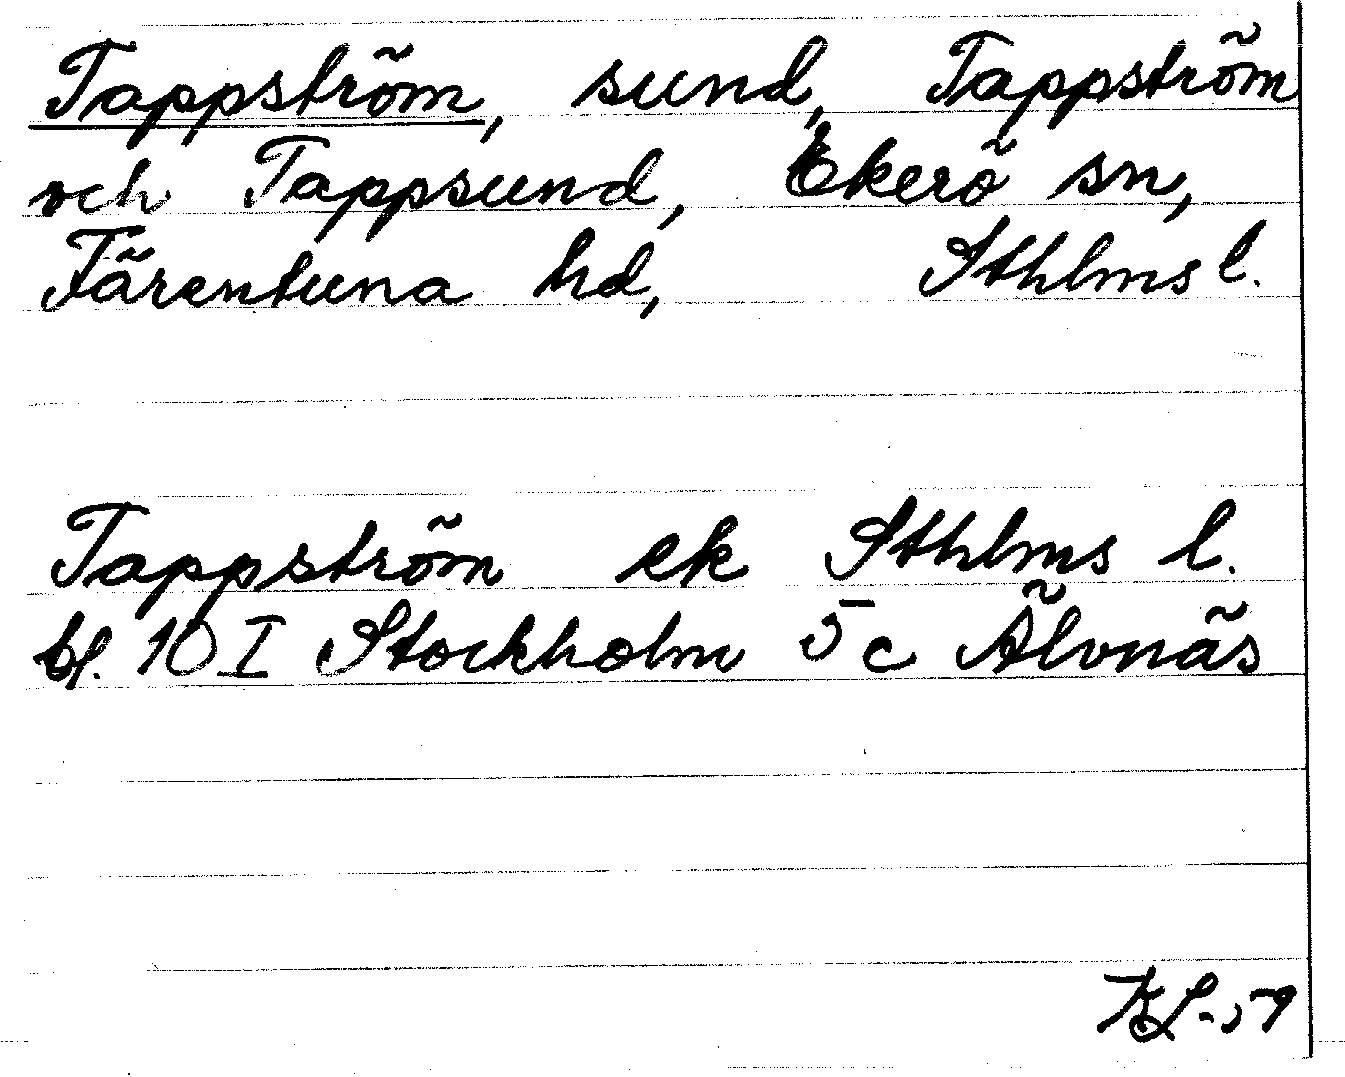 Tappström, sund, Tappström
och Tappsund, Ekerö sn,
Färentuna hd, Sthlms l.
Tappström ek Sthlms l.
bl. 10 I Stockholm 5c Älvnäs
KL-59